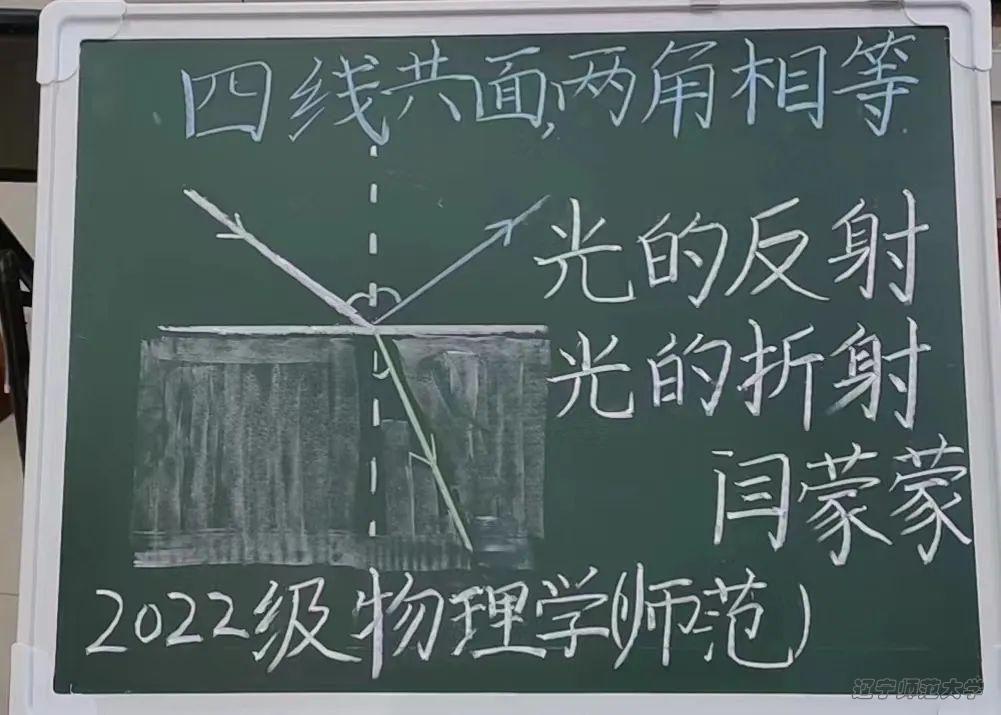 四线共面,两角相等
光的反射
光的折射
闫蒙蒙
2022级物理学(师范)
辽宁师范大学